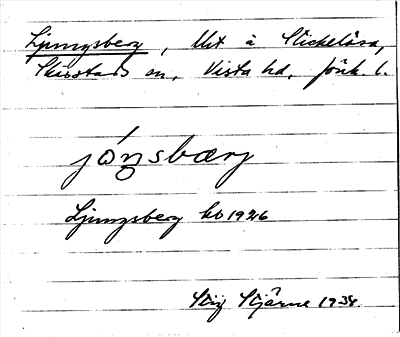 Ljungsberg, lht å Stickelösa,
Skärstads sn, Vista hd, Jönk. l.
jóŋsbærj
Ljungsberg kb 1926
Stig Stjärne 1938.